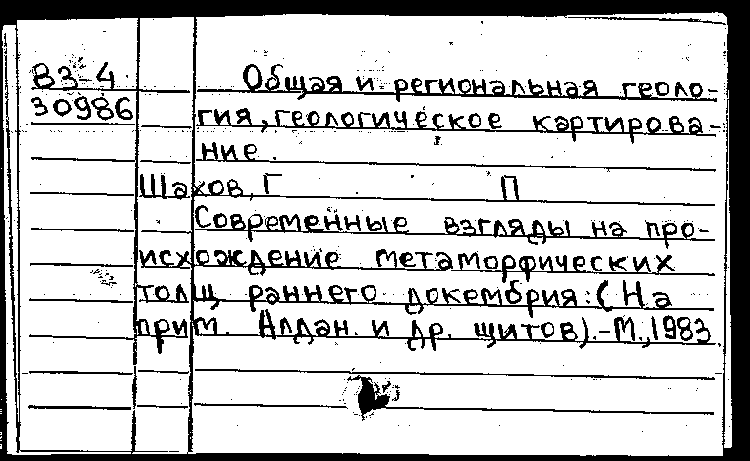 В3-4 Общая и региональная геоло-
30986 гия, геологическое картирова-
ние.
Шахов, Г П
Современные взгляды на про-
исхождение метаморфических
толщ раннего докембрия: (На
прим. Алдан. и др. щитов).-М.,1983.